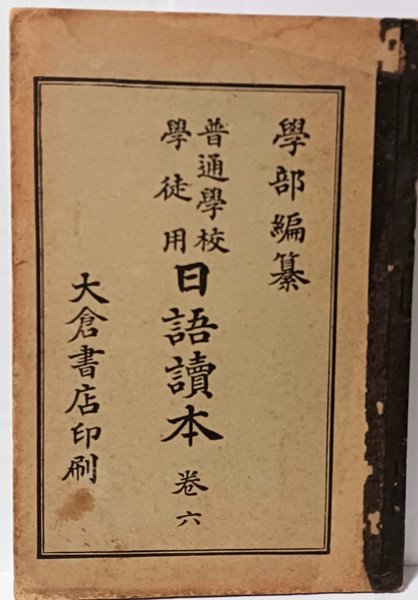 學部編纂
普通學校
學徒用
日語讀本 卷六
大倉書店印刷